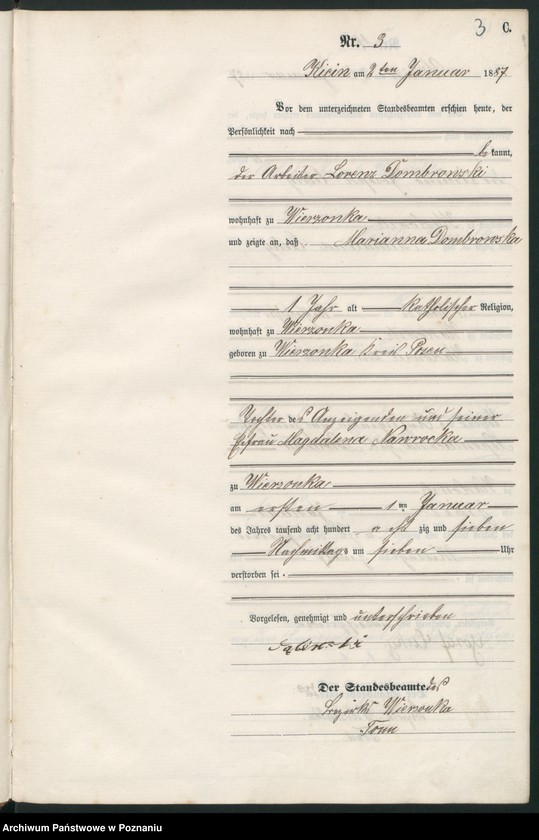 3 C.
Nr. 3
Kicin am 2ten Januar 1887
Vor dem unterzeichneten Standesbeamten erschien heute, der
Persönlichkeit nach
be kannt,
der Arbeiter Lorenz Dombrowski
wohnhaft zu Wierzonka
und zeigte an, daß Marianna Dombrowska
1 Jahr alt katholischer Religion,
wohnhaft zu Wierzonka
geboren zu Wierzonka Kreis Posen
Tochter des Anzeigenden und seiner
Ehefrau Magdalena Nawrocka
zu Wierzonka
am ersten 1ten Januar
des Jahres tausend acht hundert acht zig und sieben
Nachmittags um sieben Uhr
verstorben sei.
Vorgelesen, genehmigt und unterschrieben
Der Standesbeamte des
Bezirks Wierzonka
Archiwum Państwowe w Poznaniu